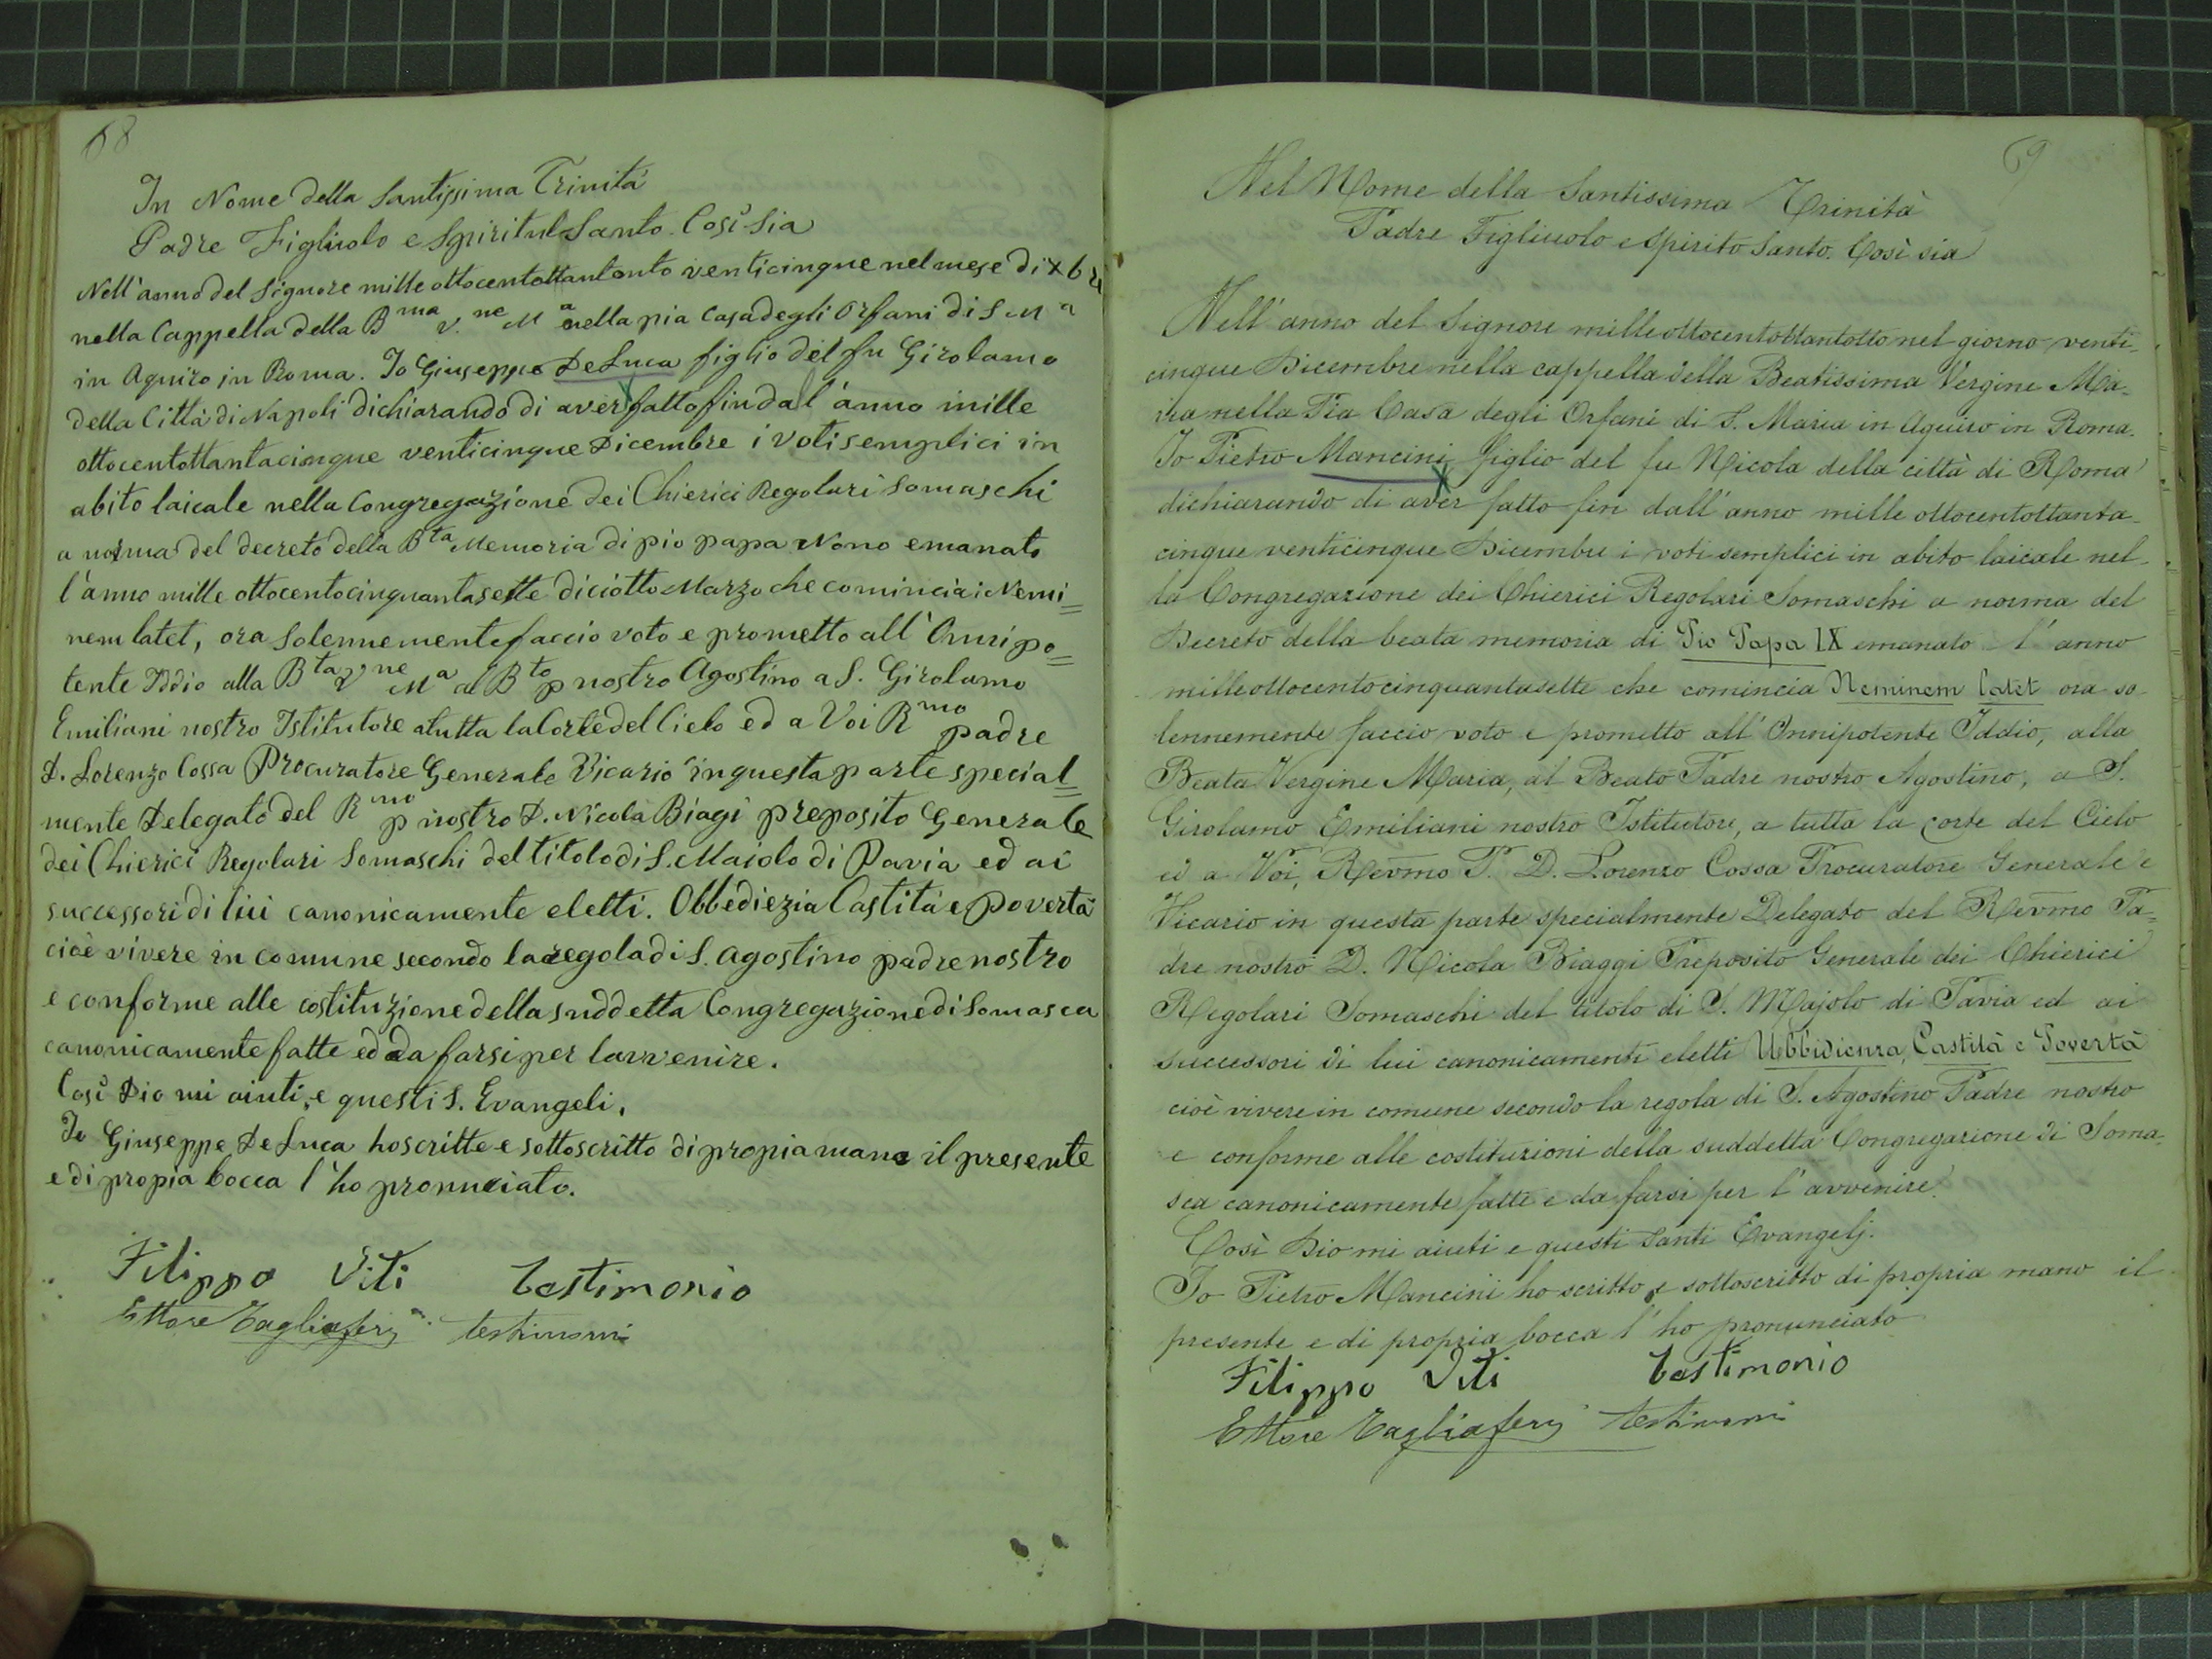 68
In Nome della Santissima Trinità
Padre Figliuolo e Spiritul Santo. Così Sia
Nell'anno del Signore mille ottocentottantonto venticinque nel mese di Xbr
nella Cappella della Bma V.ne Ma nella pia Casa degli Orfani di S Ma
in Aquiro in Roma. Io Giuseppe De Luca figlio del fu Girolamo
della Città di Napoli dichiarando di aver fatto fin dal l'anno mille
ottocentottantacinque venticinque Dicembre i voti semplici in
abito laicale nella Congregazione dei Chierici Regolari Somaschi
a norma del decreto della Bta Memoria di pio papa Nono emanato
l'anno mille ottocentocinquantasette diciotto Marzo che comincia: Nemi=
nem latet, ora Solennemente faccio voto e prometto all'Omnipo=
tente Iddio alla Bta Vne Ma al Bto p nostro Agostino a S. Girolamo
Emiliani nostro Istitutore a tutta la Corte del Cielo ed a Voi Rmo padre
D. Lorenzo Cossa Procuratore Generale Vicario in questa parte special=
mente Delegato del Rmo p nostro D. Nicola Biagi preposito Generale
dei Chierici Regolari Somaschi del titolo di S. Maiolo di Pavia ed ai
successori di lui canonicamente eletti. Obbediezia Castità e Povertà
cioè vivere in comune secondo la regola di S. Agostino padre nostro
e conforme alle costituzione della suddetta Congregazione di Somasca
canonicamente fatte ed da farsi per l'avvenire.
Così Dio mi aiuti, e questi S. Evangeli.
Io Giuseppe De Luca ho scritte e sottoscritto di propia mano il presente
e di propia bocca l'ho pronuciato.
Filippo Viti testimonio
Ettore Tagliaferri testimoni
69
Nel Nome della Santissima Trinità
Padre Figliuolo e Spirito Santo. Così sia
Nell'anno del Signore milleottocentottantotto nel giorno venti-
cinque Dicembre nella cappella della Beatissima Vergine Ma-
ria nella Pia Casa degli Orfani di S. Maria in Aquiro in Roma.
Io Pietro Mancini figlio del fu Nicola della città di Roma
dichiarando di aver fatto fin dall'anno mille ottocentottanta-
cinque venticinque Dicembre i voti semplici in abito laicale nel-
la Congregazione dei Chierici Regolari Somaschi a norma del
Decreto della beata memoria di Pio Papa IX emanato l'anno
milleottocentocinquantasette che comincia Neminem latet ora so-
lennemente faccio voto e prometto all'Onnipotente Iddio, alla
Beata Vergine Maria, al Beato Padre nostro Agostino, a S.
Girolamo Emiliani nostro Istitutore, a tutta la corte del Cielo
ed a Voi, Revmo P. D. Lorenzo Cossa Procuratore Generale e
Vicario in questa parte specialmente Delegato del Revmo Pa=
dre nostro D. Nicola Biaggi Preposito Generale dei Chierici
Regolari Somaschi del titolo di S. Majolo di Pavia ed ai
successori di lui canonicamente eletti Ubbidienza, Castità e Povertà
cioè vivere in comune secondo la regola di S. Agostino Padre nostro
e conforme alle costituzioni della suddetta Congregazione di Soma-
sca canonicamente fatte e da farsi per l'avvenire.
Così Dio mi aiuti e questi Santi Evangelj.
Io Pietro Mancini ho scritto e sottoscritto di propria mano il
presente e di propria bocca l'ho pronunciato
Filippo Viti testimonio
Ettore Tagliaferri testimoni